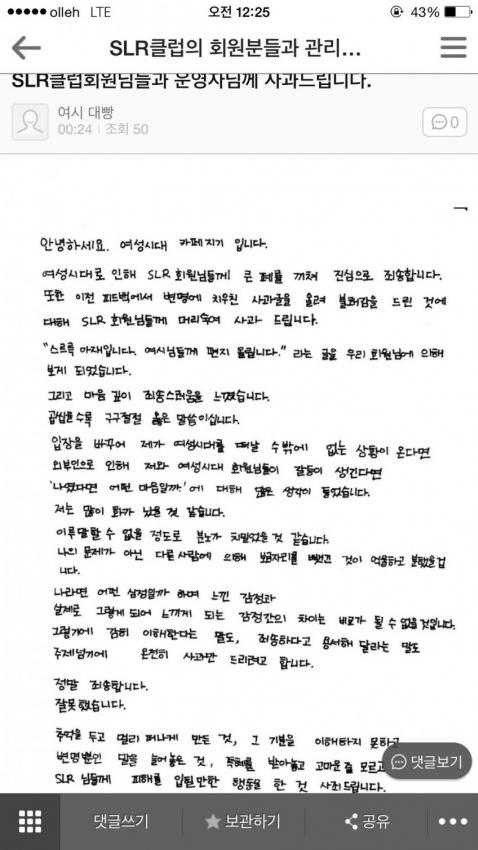 olleh LTE 오전 12:25 43%
SLR클럽의 회원분들과 관리...
SLR클럽회원님들과 운영자님께 사과드립니다.
여시 대빵
00:24 | 조회 50
0
안녕하세요. 여성시대 카페지기 입니다.
여성시대로 인해 SLR 회원님들께 큰 폐를 끼쳐 진심으로 죄송합니다.
또한 이전 피드백에서 변명에 치우친 사과글을 올려 불쾌감을 드린 것에
대해 SLR 회원님들께 머리숙여 사과 드립니다.
"스르륵 아재입니다. 여시님들께 편지 올립니다." 라는 글을 우리 회원님에 의해
보게 되었습니다.
그리고 마음 깊이 죄송스러움을 느꼈습니다.
곱씹을수록 구구절절 옳은 말씀이십니다.
입장을 바꾸어 제가 여성시대를 떠날 수밖에 없는 상황이 온다면
외부인으로 인해 저와 여성시대 회원님들이 갈등이 생긴다면
'나였다면 어떤 마음일까.'에 대해 많은 생각이 들었습니다.
저는 많이 화가 났을 것 같습니다.
이루말할 수 없을 정도로 분노가 치밀었을 것 같습니다.
나의 문제가 아닌 다른 사람에 의해 보금자리를 빼앗긴 것이 억울하고 분했을겁
니다.
나라면 어떤 심정일까 하며 느낀 감정과
실제로 그렇게 되어 느끼게 되는 감정간의 차이는 비교가 될 수 없을 것입니다.
그렇기에 감히 이해한다는 말도, 죄송하다고 용서해 달라는 말도
주제넘기에 온전히 사과만 드리려고 합니다.
정말 죄송합니다.
잘못했습니다.
추억을 두고 멀리 떠나게 만든 것, 그 기분을 이해하지 못하고
변명뿐인 말을 늘어놓은 것, 특혜를 받아놓고 고마운줄 모르고
SLR 님들께 피해를 입힐만한 행동을 한 것 사죄드립니다.
댓글보기
댓글쓰기 보관하기 공유